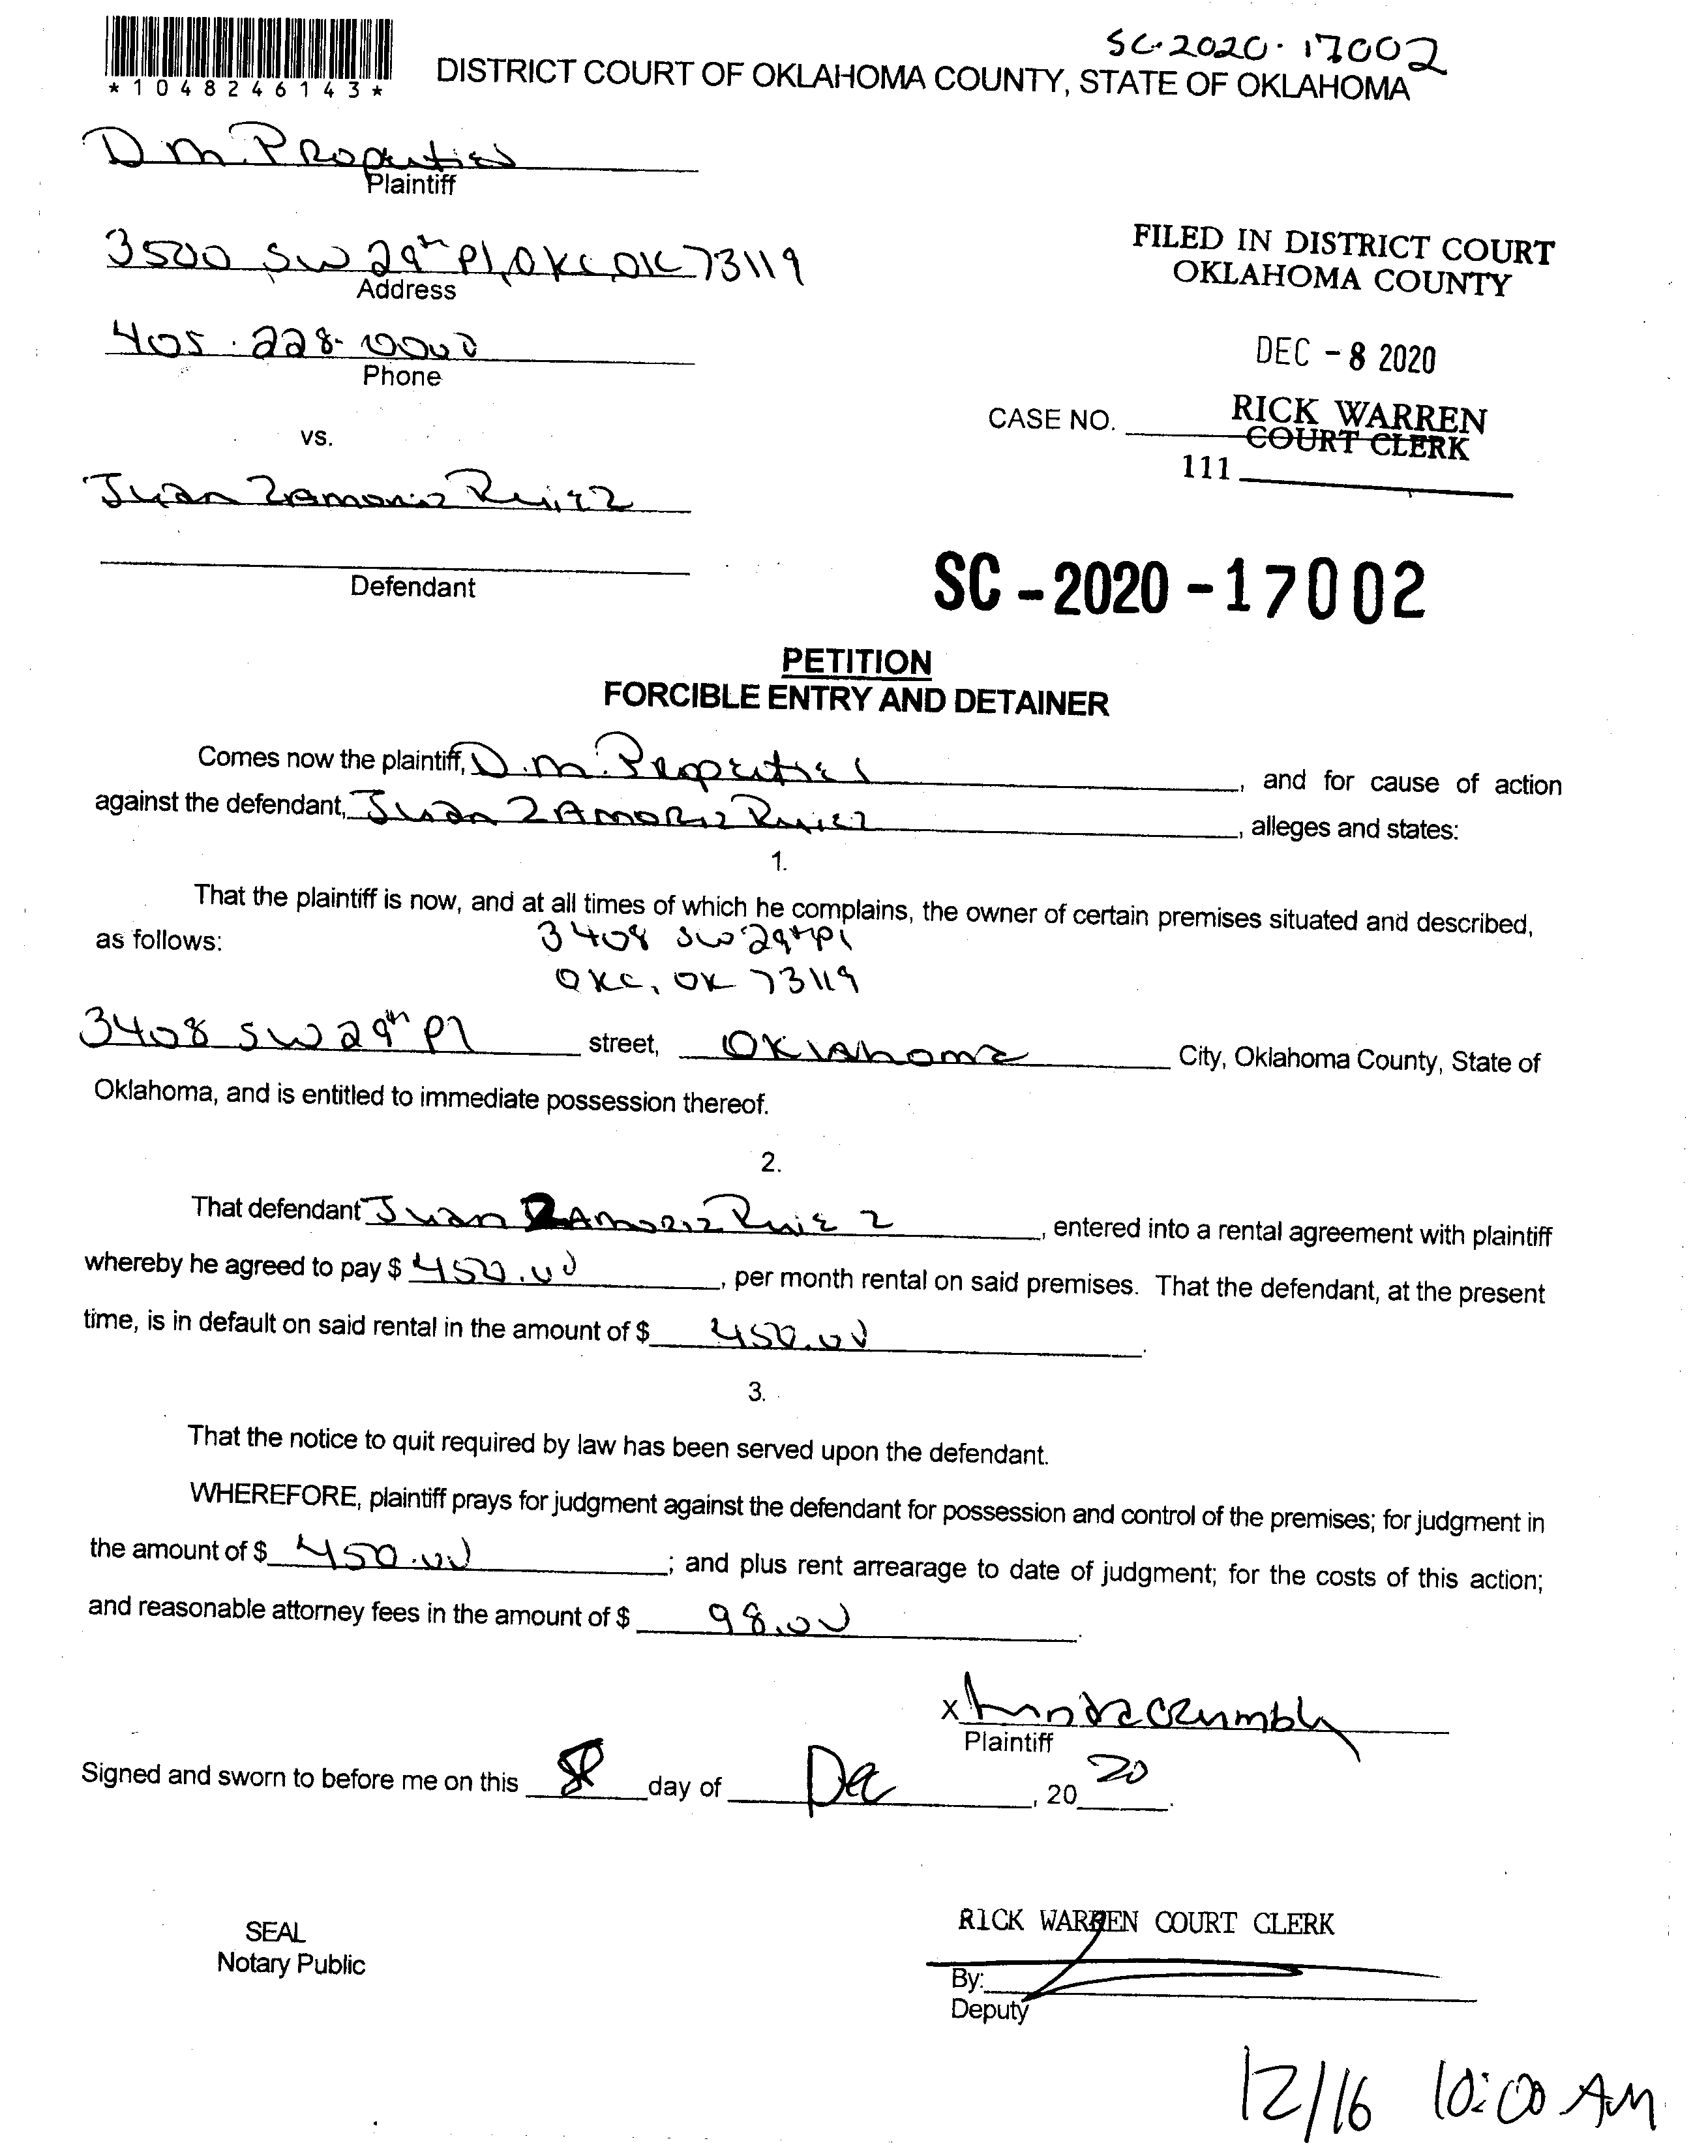 SC-2020-17002
*1048246143*
DISTRICT COURT OF OKLAHOMA COUNTY, STATE OF OKLAHOMA
D.M. Properties
Plaintiff
3500 SW 29th Pl, OKC, OK 73119
Address
FILED IN DISTRICT COURT
OKLAHOMA COUNTY
405.228-0000
Phone
DEC - 8 2020
RICK WARREN
CASE NO.
COURT CLERK
vs.
111
Juan Zamoriz Ruiez
Defendant
SC-2020-17002
PETITION
FORCIBLE ENTRY AND DETAINER
Comes now the plaintiff, D.M. Properties, and for cause of action
against the defendant, Juan ZAMORiz Ruiez, alleges and states:
1.
That the plaintiff is now, and at all times of which he complains, the owner of certain premises situated and described,
as follows: 3408 SW 29th Pl
OKC, OK 73119
3408 SW 29th Pl street, Oklahoma City, Oklahoma County, State of
Oklahoma, and is entitled to immediate possession thereof.
2.
That defendant Juan ZAMORiz Ruiez, entered into a rental agreement with plaintiff
whereby he agreed to pay $ 450.00, per month rental on said premises. That the defendant, at the present
time, is in default on said rental in the amount of $ 450.00.
3.
That the notice to quit required by law has been served upon the defendant.
WHEREFORE, plaintiff prays for judgment against the defendant for possession and control of the premises; for judgment in
the amount of $ 450.00; and plus rent arrearage to date of judgment; for the costs of this action;
and reasonable attorney fees in the amount of $ 98.00.
x Linda Crumbly
Plaintiff
Signed and sworn to before me on this 8 day of Dec, 2020.
RICK WARREN COURT CLERK
SEAL
Notary Public
By:
Deputy
12/16 10:00 AM